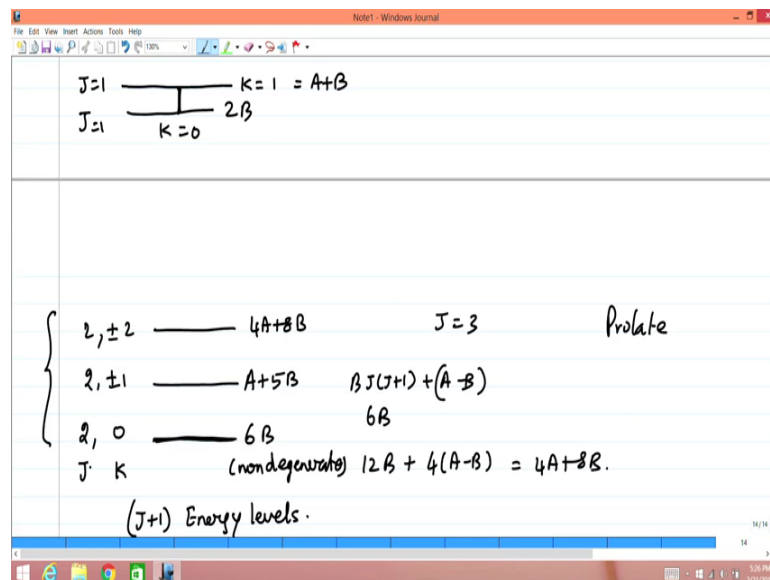 Note1 - Windows Journal
File Edit View Insert Actions Tools Help
130%
J=1 K=1 = A+B
J=1 2B
K=0
2, ±2 4A+8B J=3 Prolate
2, ±1 A+5B BJ(J+1)+(A-B)
6B
2, 0 6B
J K (nondegenerate) 12B + 4(A-B) = 4A+8B.
(J+1) Energy levels.
14/14
14
5:26 PM